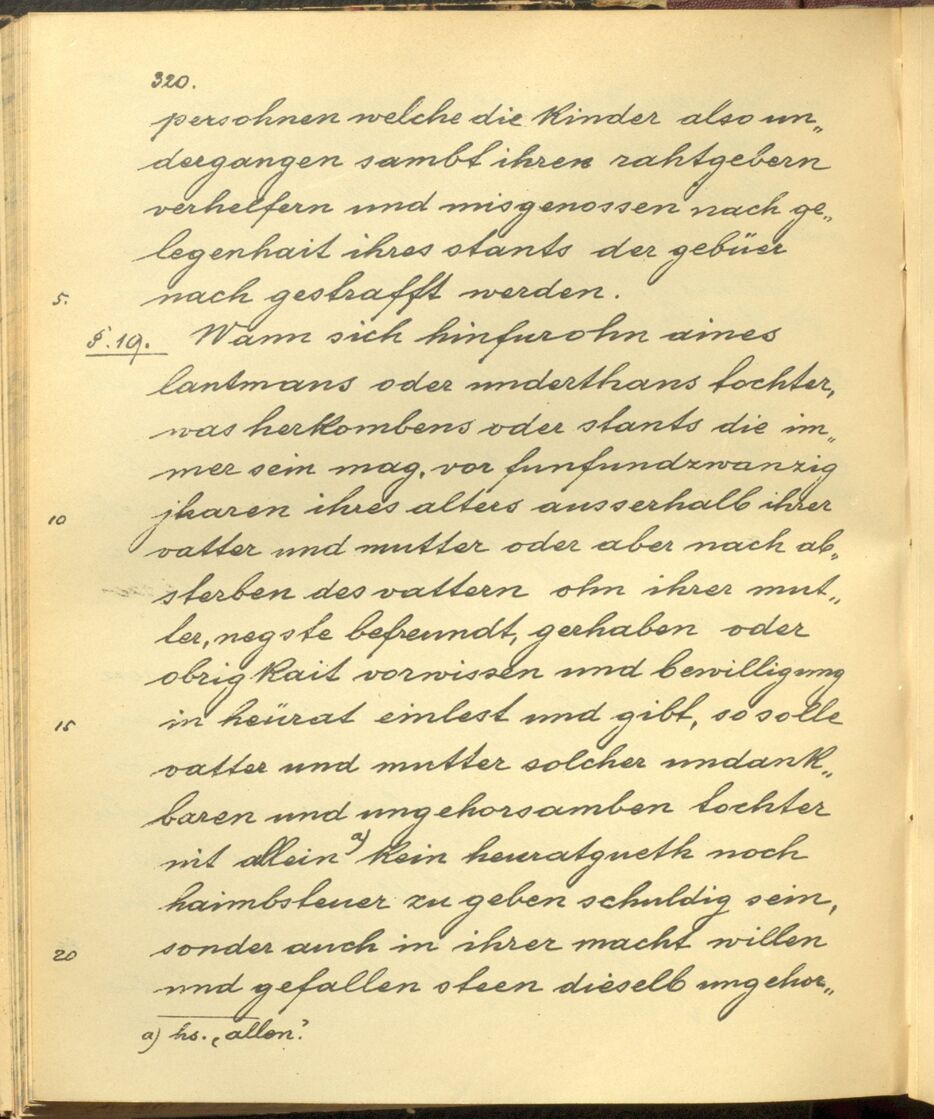 320.
persohnen welche die Kinder also un„
dergangen sambt ihren rahtgebern
verhelfern und misgenossen nach ge„
legenhait ihres stants der gebüer
5. nach gestrafft werden.
§. 19. Wann sich hinfur ohn aines
lantmans oder underthans tochter,
was herkombens oder stants die im„
mer sein mag, vor funfundzwanzig
10 jharen ihres alters ausserhalb ihrer
vatter und mutter oder aber nach ab„
sterben des vattern ohn ihrer mut„
ter, negste befreundt, gerhaben oder
obrigkait vorwissen und bewilligung
15 in heürat einlest und gibt, so solle
vatter und mutter solcher undank„
baren und ungehorsamben tochter
nit allein a) kein heuratgueth noch
haimbsteuer zu geben schuldig sein,
20 sonder auch in ihrer macht willen
und gefallen steen dieselb ungehor„
a) hs. „allen“.